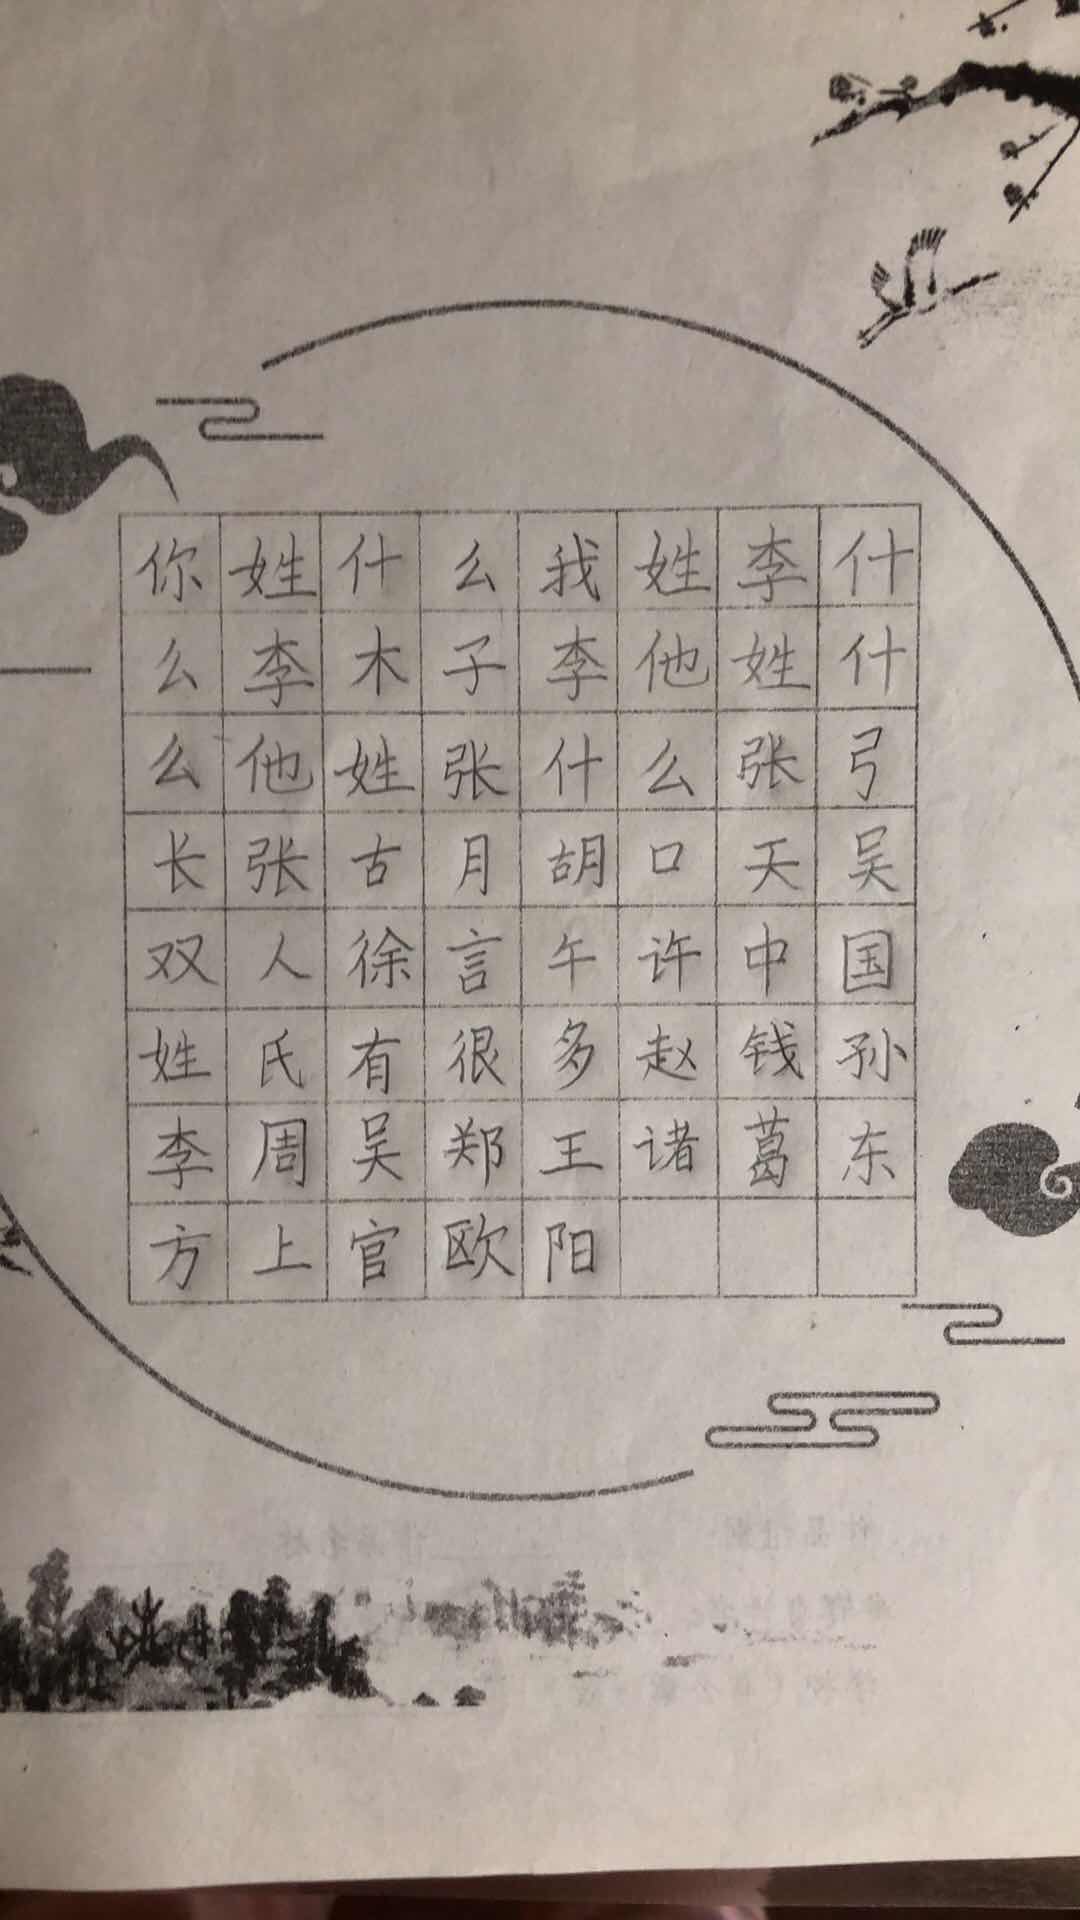 你姓什么我姓李什
么李木子李他姓什
么他姓张什么张弓
长张古月胡口天吴
双人徐言午许中国
姓氏有很多赵钱孙
李周吴郑王诸葛东
方上官欧阳